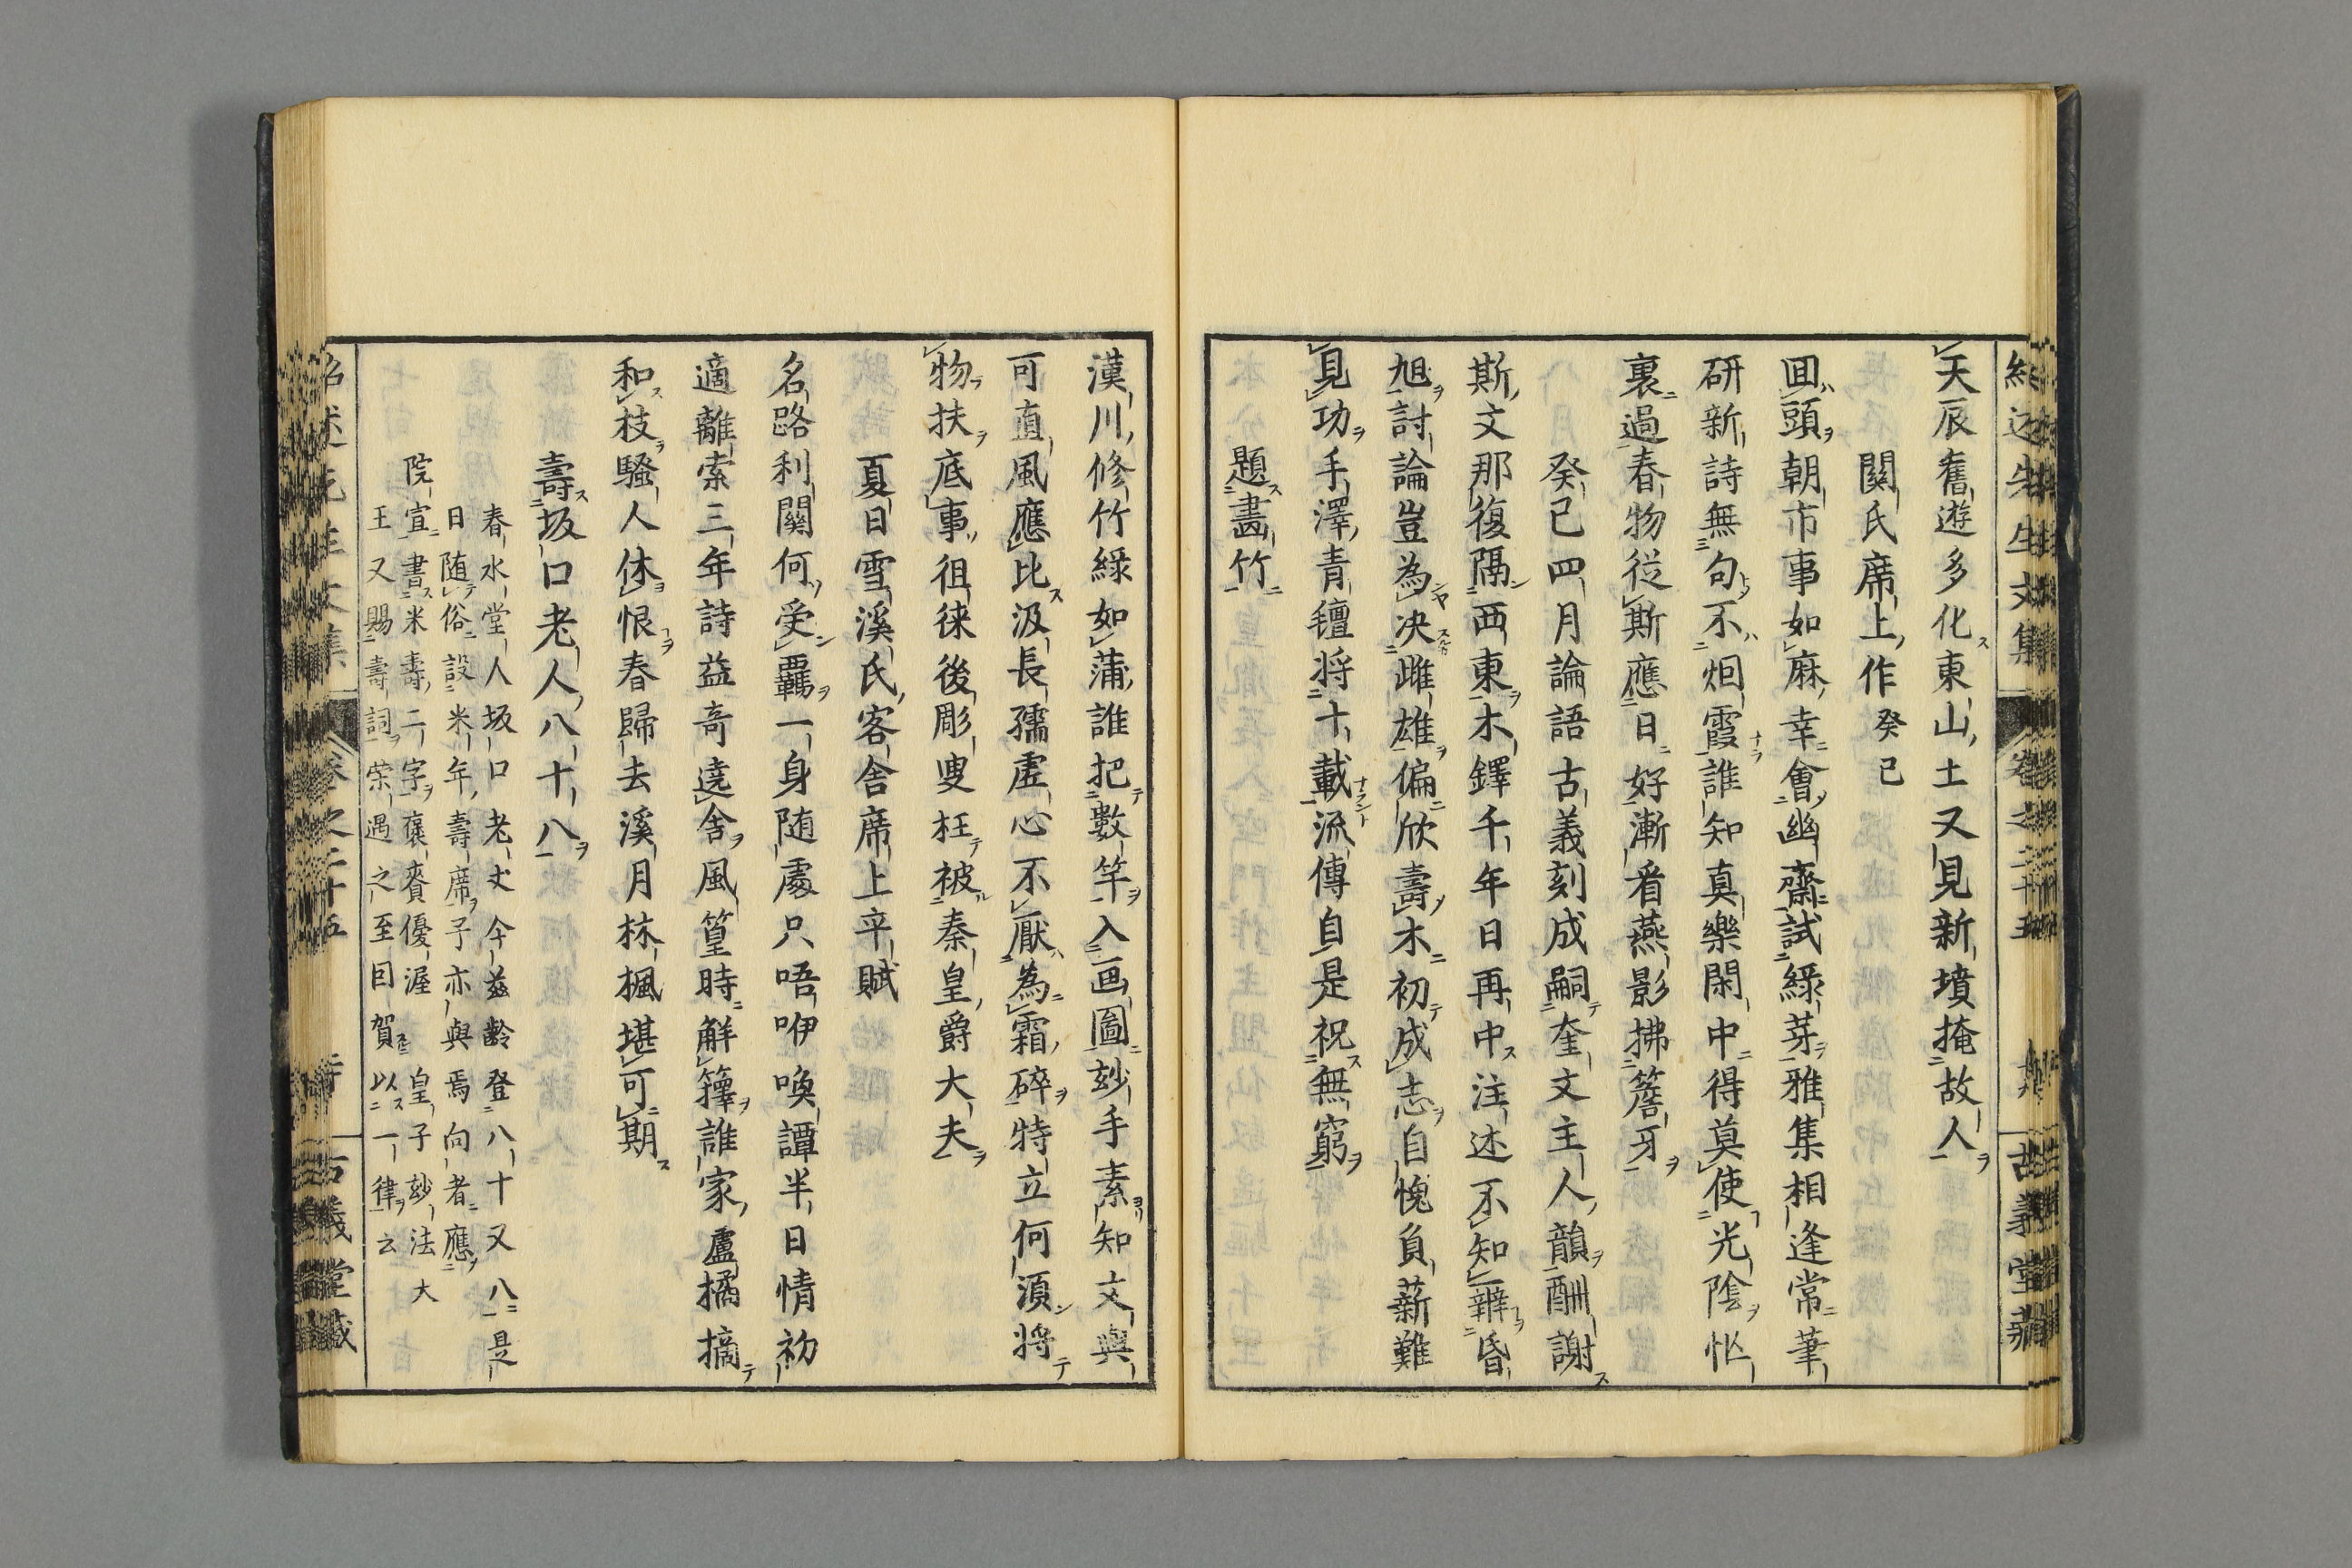 天辰舊遊多化東山土又見新墳掩故人
關氏席上作 癸巳
回頭朝市事如麻幸會幽齋試綠芽雅集相逢常筆
研新詩無句不烟霞誰知真樂閑中得莫使光陰忙
裏過春物從斯應日好漸看燕影拂簷牙
癸巳四月論語古義刻成嗣奎文主人韻酬謝
斯文那復隔西東木鐸千年日再中注述不知辨昏
旭討論豈為决雌雄偏欣壽木初成志自愧負薪難
見功手澤青氊将十載流傳自是祝無窮
題畫竹
漢川修竹綠如蒲誰把數竿入画圖玅手素知文與
可直風應比汲長孺虛心不厭為霜碎特立何湏将
物扶底事徂徠後彫叟枉被秦皇爵大夫
夏日雪溪氏客舍席上卒賦
名路利關何受羈一身随處只唔咿喚譚半日情初
適離索三年詩益奇遶舍風篁時解籜誰家盧橘摘
和枝騷人休恨春歸去溪月林楓堪可期
壽坂口老人八十八
春水堂人坂口老丈今茲齡登八十又八是
日随俗設米年壽席子亦與焉向者應
院宣書米壽二字褒賚優渥 皇子玅法大
王又賜壽詞荣遇之至因賀以一律云
卷之二十五
古義堂藏